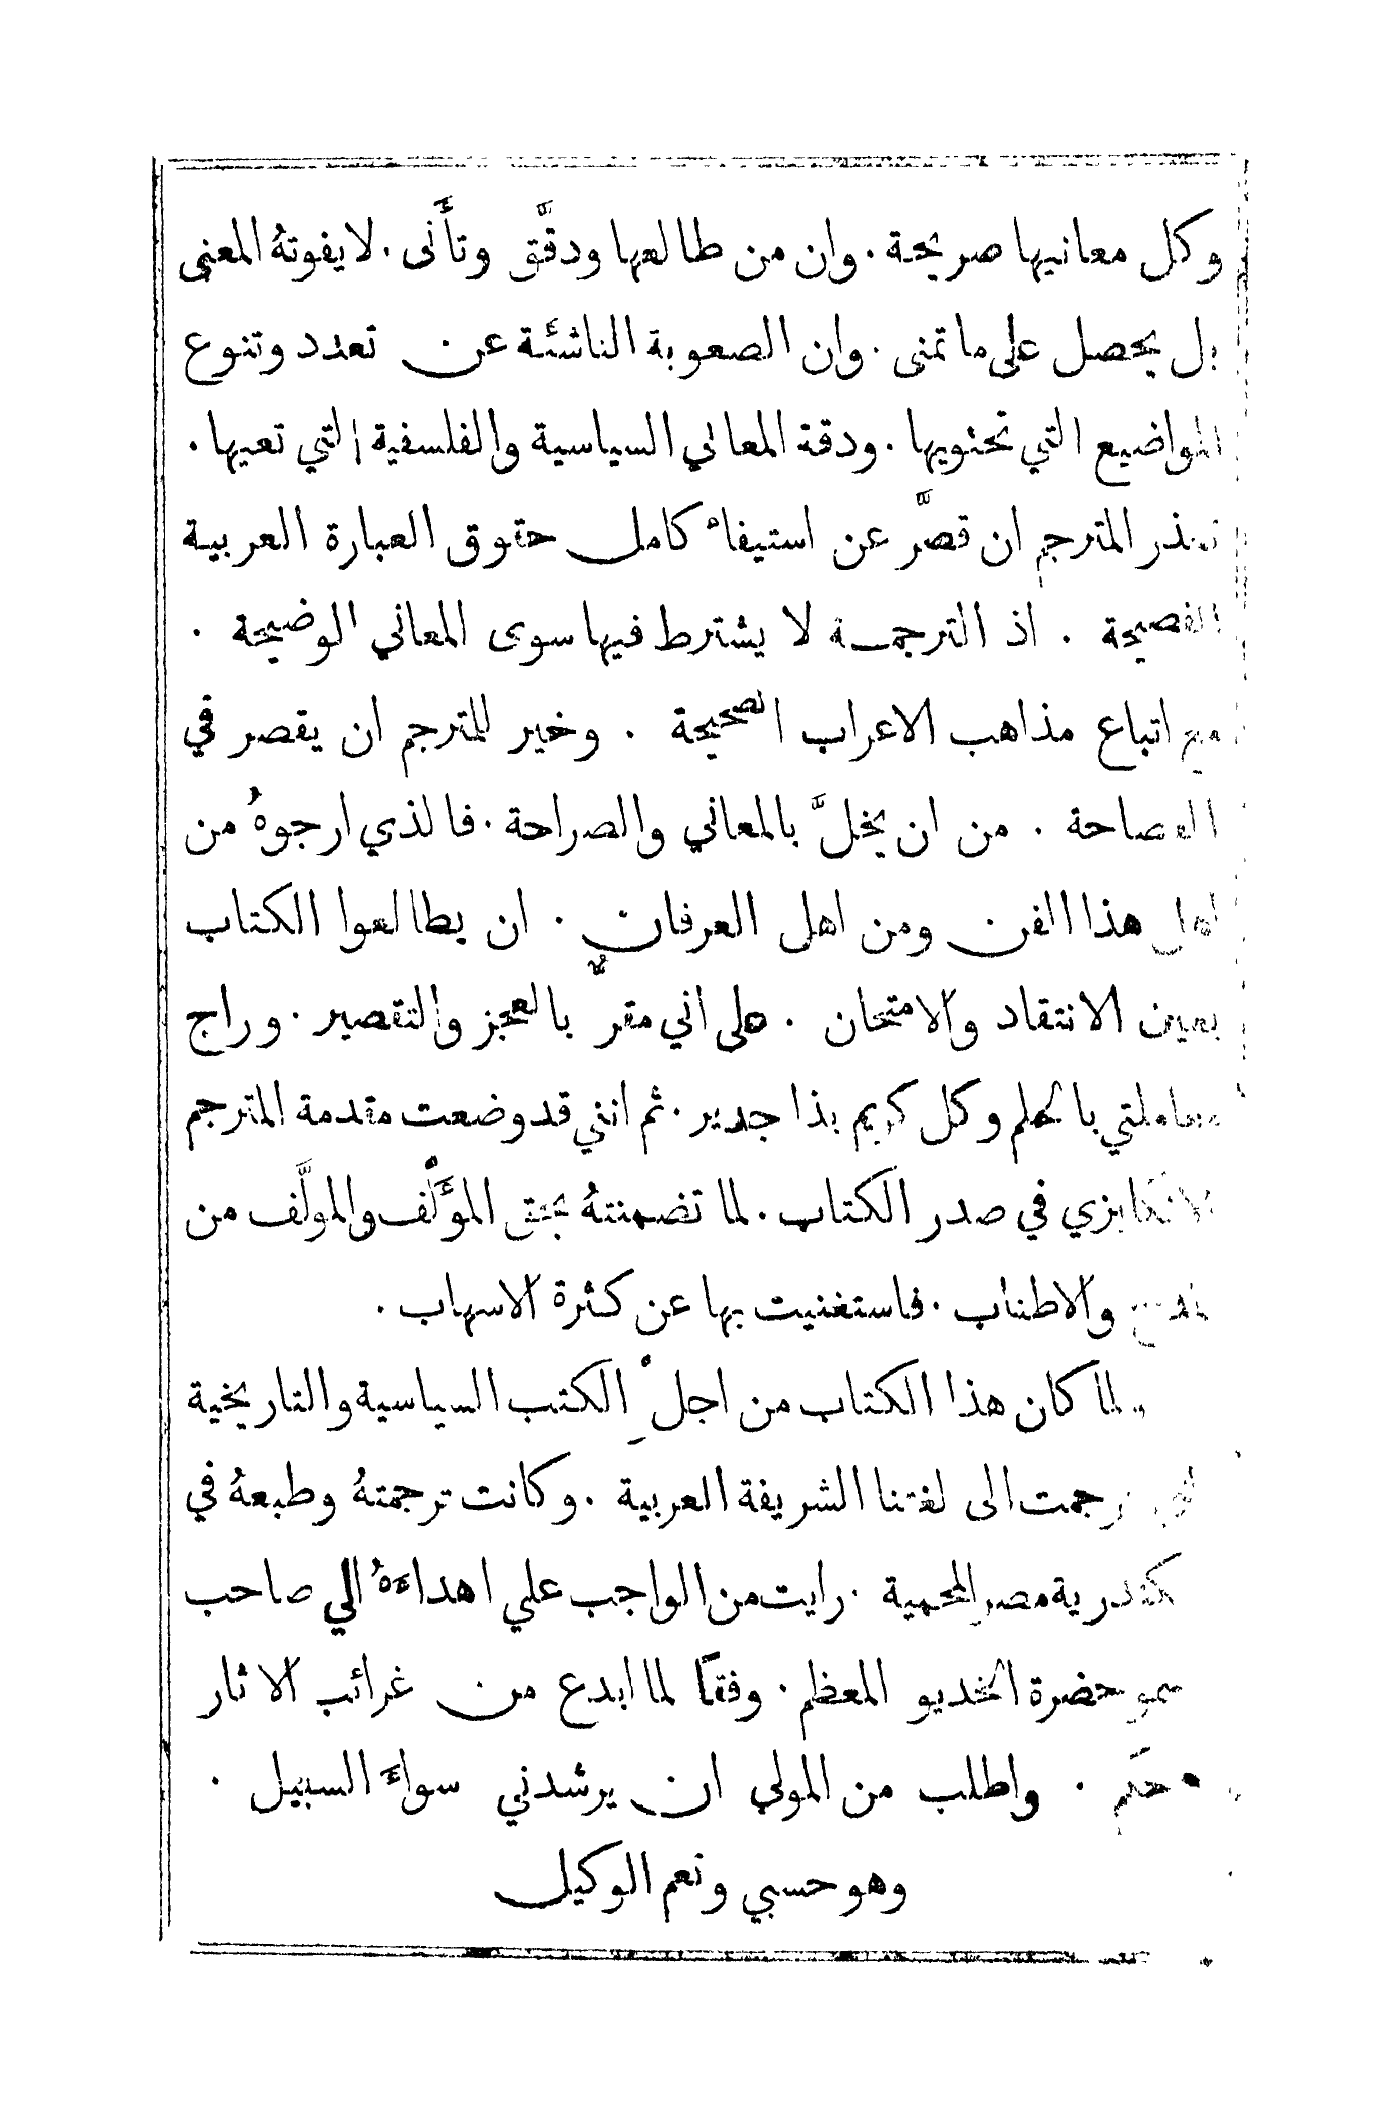 وكل معانيها صريحة . وان من طالعها ودقَّق وتأَنى . لا يفوتهُ المعنى
بل يحصل على ما تمنى . وان الصعوبة الناشئة عن تعدد وتنوع
المواضيع التي تحتويها . ودقة المعاني السياسية والفلسفية التي تعيها .
تعذر المترجم ان قصَّر عن استيفاء كامل حقوق العبارة العربية
الفصيحة . اذ الترجمة لا يشترط فيها سوى المعاني الوضيحة .
مع اتباع مذاهب الاعراب الصحيحة . وخير للمترجم ان يقصر في
الفصاحة . من ان يخلَّ بالمعاني والصراحة . فالذي ارجوهُ من
اهل هذا الفن ومن اهل العرفان . ان يطالعوا الكتاب
بعين الانتقاد والامتحان . على اني مقرٌّ بالعجز والتقصير . وراج
معاملتي بالحلم وكل كريم بذا جدير . ثم انني قد وضعت مقدمة المترجم
الانكليزي في صدر الكتاب . لما تضمنتهُ بحق المؤَلِّف والمولَّف من
والاطناب . فاستغنيت بها عن كثرة الاسهاب .
ولما كان هذا الكتاب من اجلِّ الكتب السياسية والتاريخية
التي ترجمت الى لغتنا الشريفة العربية . وكانت ترجمتهُ وطبعهُ في
مصر المحمية . رايت من الواجب علي اهداءَهُ الي صاحب
سمو حضرة الخديو المعظم . وفقًا لما ابدع من غرائب الاثار
حكم . واطلب من المولي ان يرشدني سواءَ السبيل .
وهو حسبي ونعم الوكيل